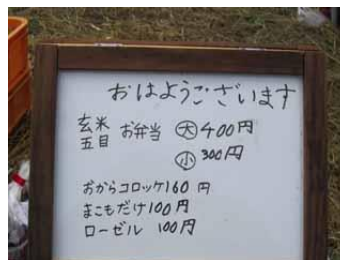 おはようございます
玄米五目 お弁当 大 400円
小 300円
おからコロッケ160円
まこもだけ100円
ローゼル 100円